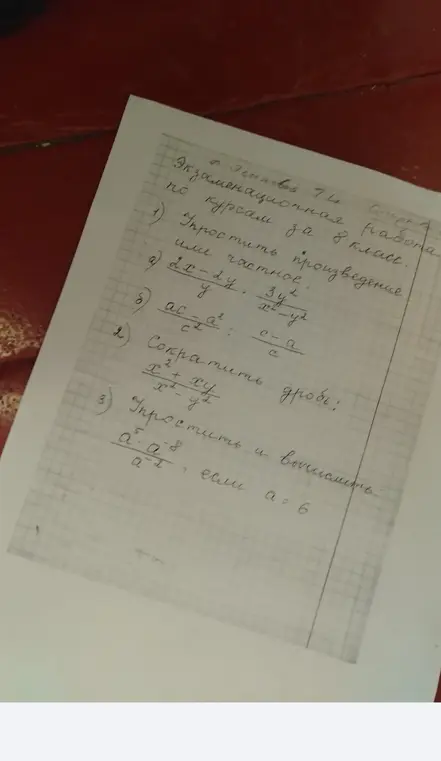 Экзаменационная работа
по курсам за 8 класс.
1) Упростить произведение
или частное:
а) (2x - 2y)/y · 3y²/(x² - y²)
б) (ac - a²)/c² : (c - a)/c
2) Сократить дробь:
(x² + xy)/(x² - y²)
3) Упростить и вычислить
(a⁵ · a⁻⁸)/a⁻², если a = 6